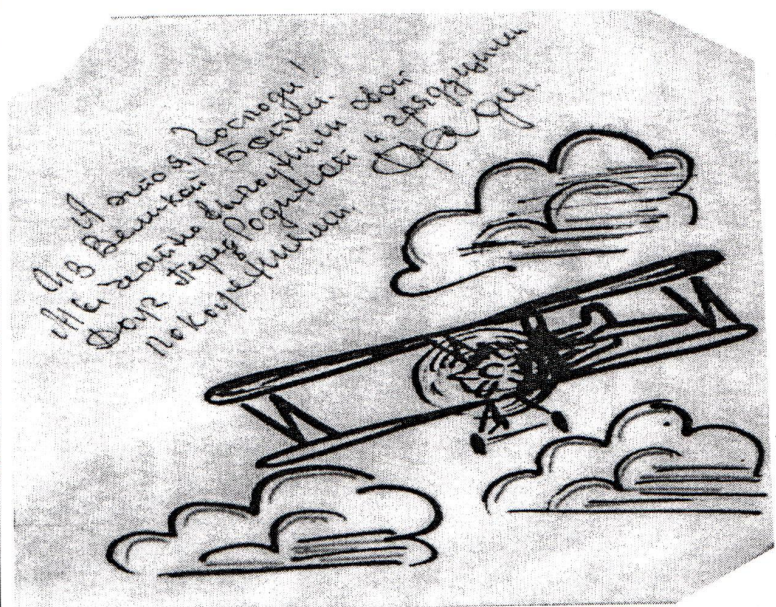 А это я, Господи!
Из Великой Битвы.
Мы честно выполнили свой
Долг перед Родиной и грядущими
поколениями.